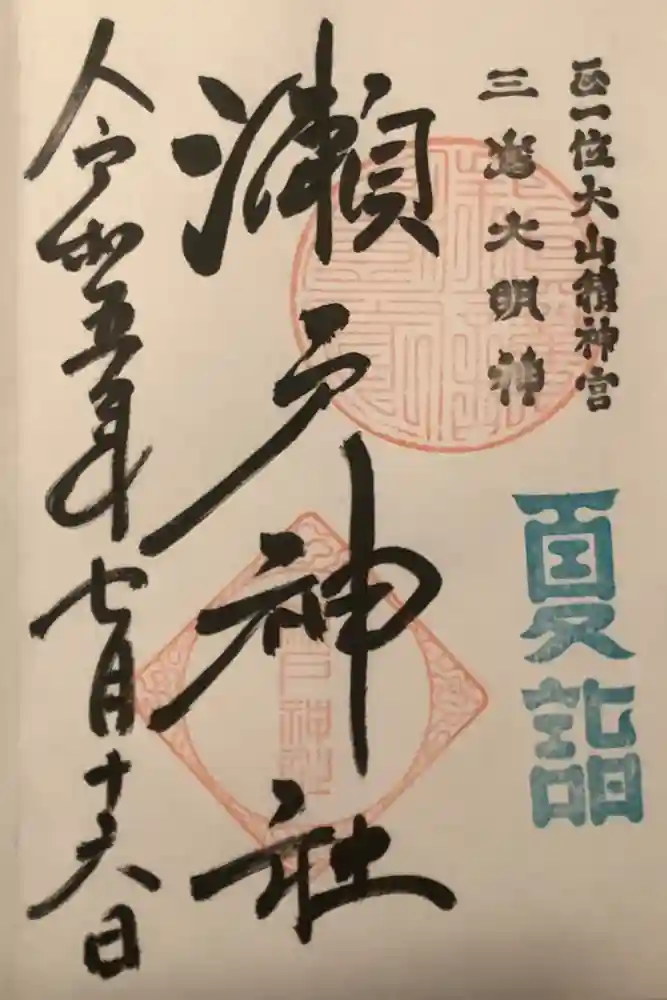 正一位大山積神宮
三島大明神
夏詣
瀨戸神社
瀬戸神社
令和五年七月十六日